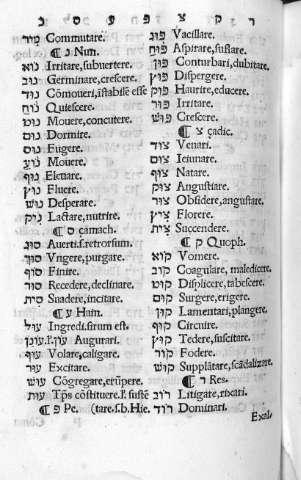 ר ק צ פ ע ס נ
מור Commutare.
¶ נ Nun.
נוא Irritare, subuertere.
נוב Germinare, crescere.
נוד Cōmoueri, īstabile esse
נוח Quiescere.
נוט Mouere, concutere.
נום Dormire.
נוס Fugere.
נוע Mouere.
נוף Eleuare.
נוץ Fluere.
נוש Desperare.
נוק Lactare, nutrire.
¶ ס çamach.
סוג Auerti.s.retrorsum.
סוך Vngere, purgare.
סוף Finire.
סור Recedere, declinare.
סית Suadere, incitare.
¶ ע Hain.
עול Ingredi.sirum est.
עון.l'.עונן Augurari.
עוף Volare, caligare.
עור Excitare.
עוש Cōgregare, erūpere.
עות Tp̄s cōstituere.l'. sustē
¶ פ Pe. (tare.s.b.Hie.
פוג Vacillare.
פוח Aspirare, suflare.
פון Conturbari, dubitare.
פוץ Dispergere.
פוק Haurire, educere.
פור Irritare.
פוש Crescere.
¶ צ çadic.
צוד Venari.
צום Ieiunare.
צוף Natare.
צוק Angustiare.
צור Obsidere, angustare.
ציץ Florere.
צית Succendere.
¶ ק Quoph.
קוא Vomere.
קוב Coagulare, maledicere.
קוט Displicere, tabescere.
קום Surgere, erigere.
קון Lamentari, plangere.
קוף Circuire.
קוץ Tedere, suscitare.
קור Fodere.
קוש Supplātare, scādalizare.
¶ ר Res.
רוב Litigare, rixari.
רוד Dominari.
Exal-